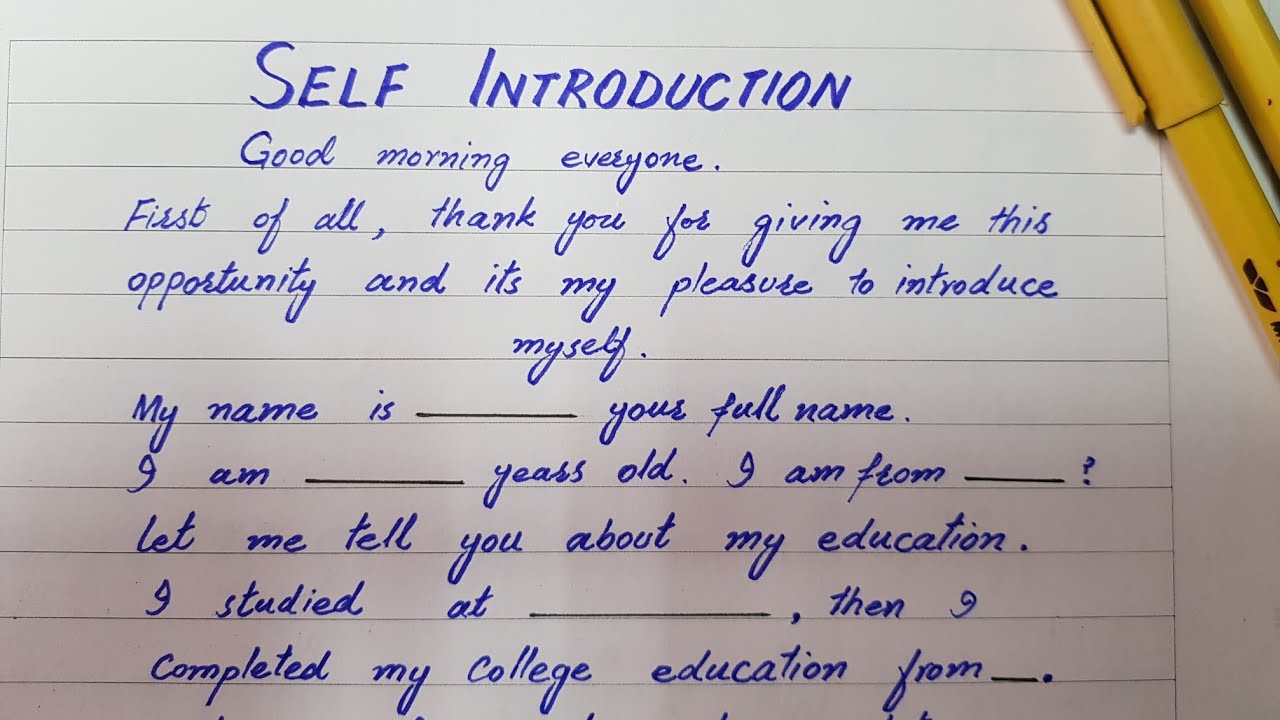 SELF INTRODUCTION
Good morning everyone.
First of all, thank you for giving me this
opportunity and its my pleasure to introduce
myself.
My name is ________ your full name.
I am ________ years old. I am from _____?
Let me tell you about my education.
I studied at ____________, then I
completed my college education from __.